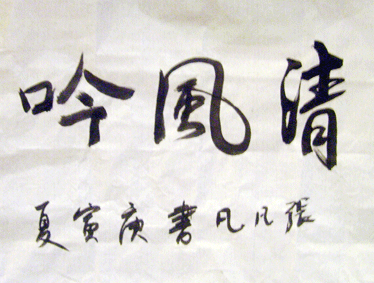 清風吟
張凡凡書庚寅夏